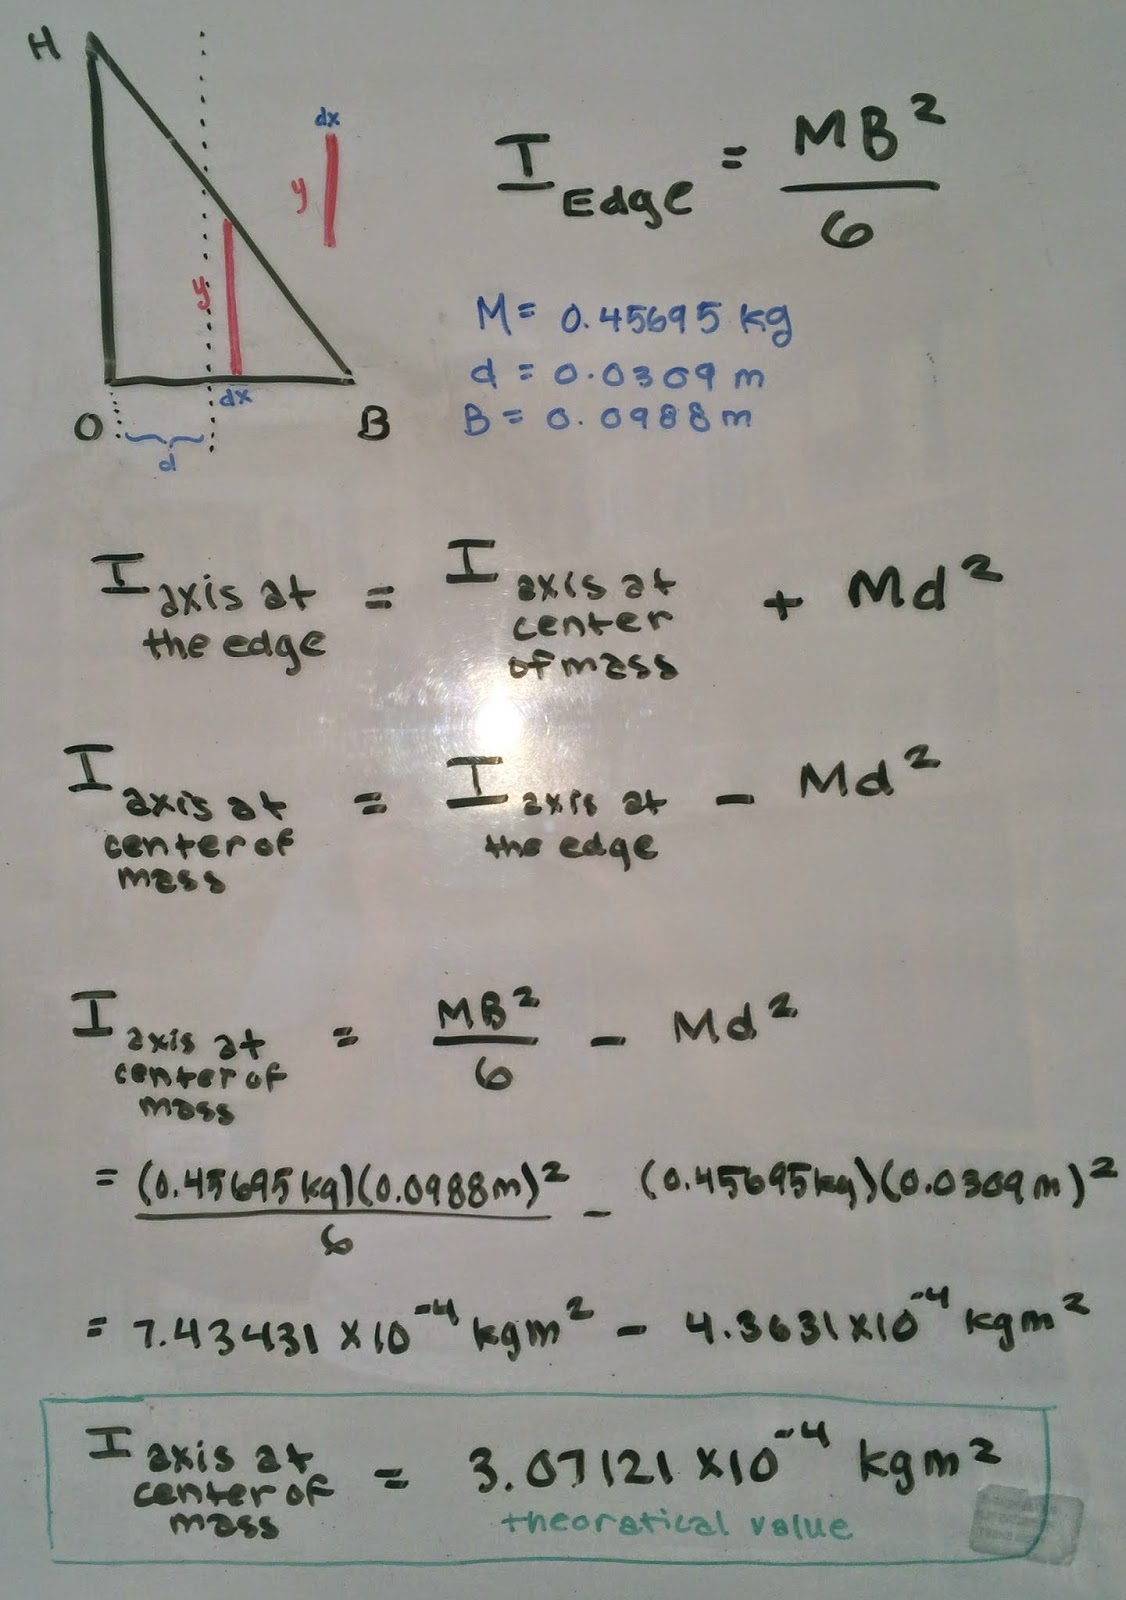 H
dx
y
I Edge = MB² / 6
y
M = 0.45695 kg
d = 0.0309 m
dx
B = 0.0988 m
O
B
d
I axis at the edge = I axis at center of mass + Md²
I axis at center of mass = I axis at the edge - Md²
I axis at center of mass = MB² / 6 - Md²
= (0.45695kg)(0.0988m)² / 6 - (0.45695kg)(0.0309m)²
= 7.43431 x 10⁻⁴ kgm² - 4.3631x10⁻⁴ kgm²
I axis at center of mass = 3.07121 x10⁻⁴ kgm²
theoratical value